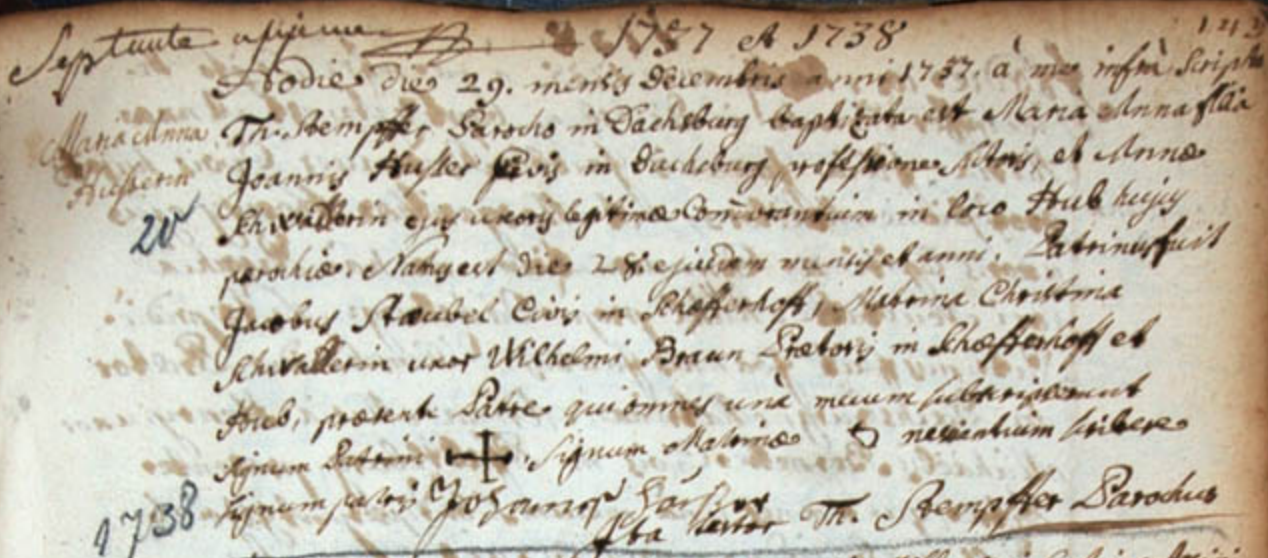 Septante 1737 et 1738 123
Hodie die 29. mensis Decembris anni 1737. à me infrà Scripto
Maria Anna
Husserin
Th. Stempffer Parocho in Dachsburg baptizata est Maria Anna filia
Joannis Husser Civis in Dachsburg, professione Sutoris, et Annæ
20
Schwallerin ejus uxoris legitimæ Commorantium in loco Hub hujus
parochiæ. Nata est die 28. ejusdem mensis et anni. Patrinus fuit
Jacobus Staubel Civis in Schæfferhoff, Matrina Christina
Schwallerin uxor Wilhelmi Braun Prætoris in Schæfferhoff et
Hub, præsente Patre qui omnes unà mecum subscripserunt
signum Patrini + signum Matrinæ nescientium scribere
1738
signum patris Johannes
Ita testor Th. Stempffer Parochus